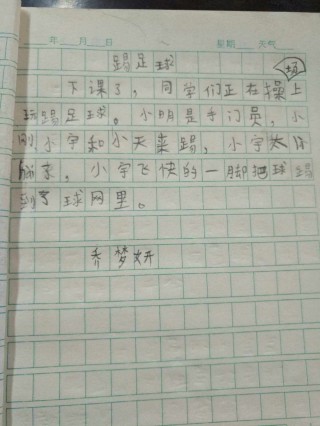 年 月 日 星期 天气
踢足球
场
下课了，同学们正在操上
玩踢足球。小明是手门员，小
刚小宇和小天来踢，小宇
小宇飞快的一脚把球踢
到了球网里。
乔梦妍